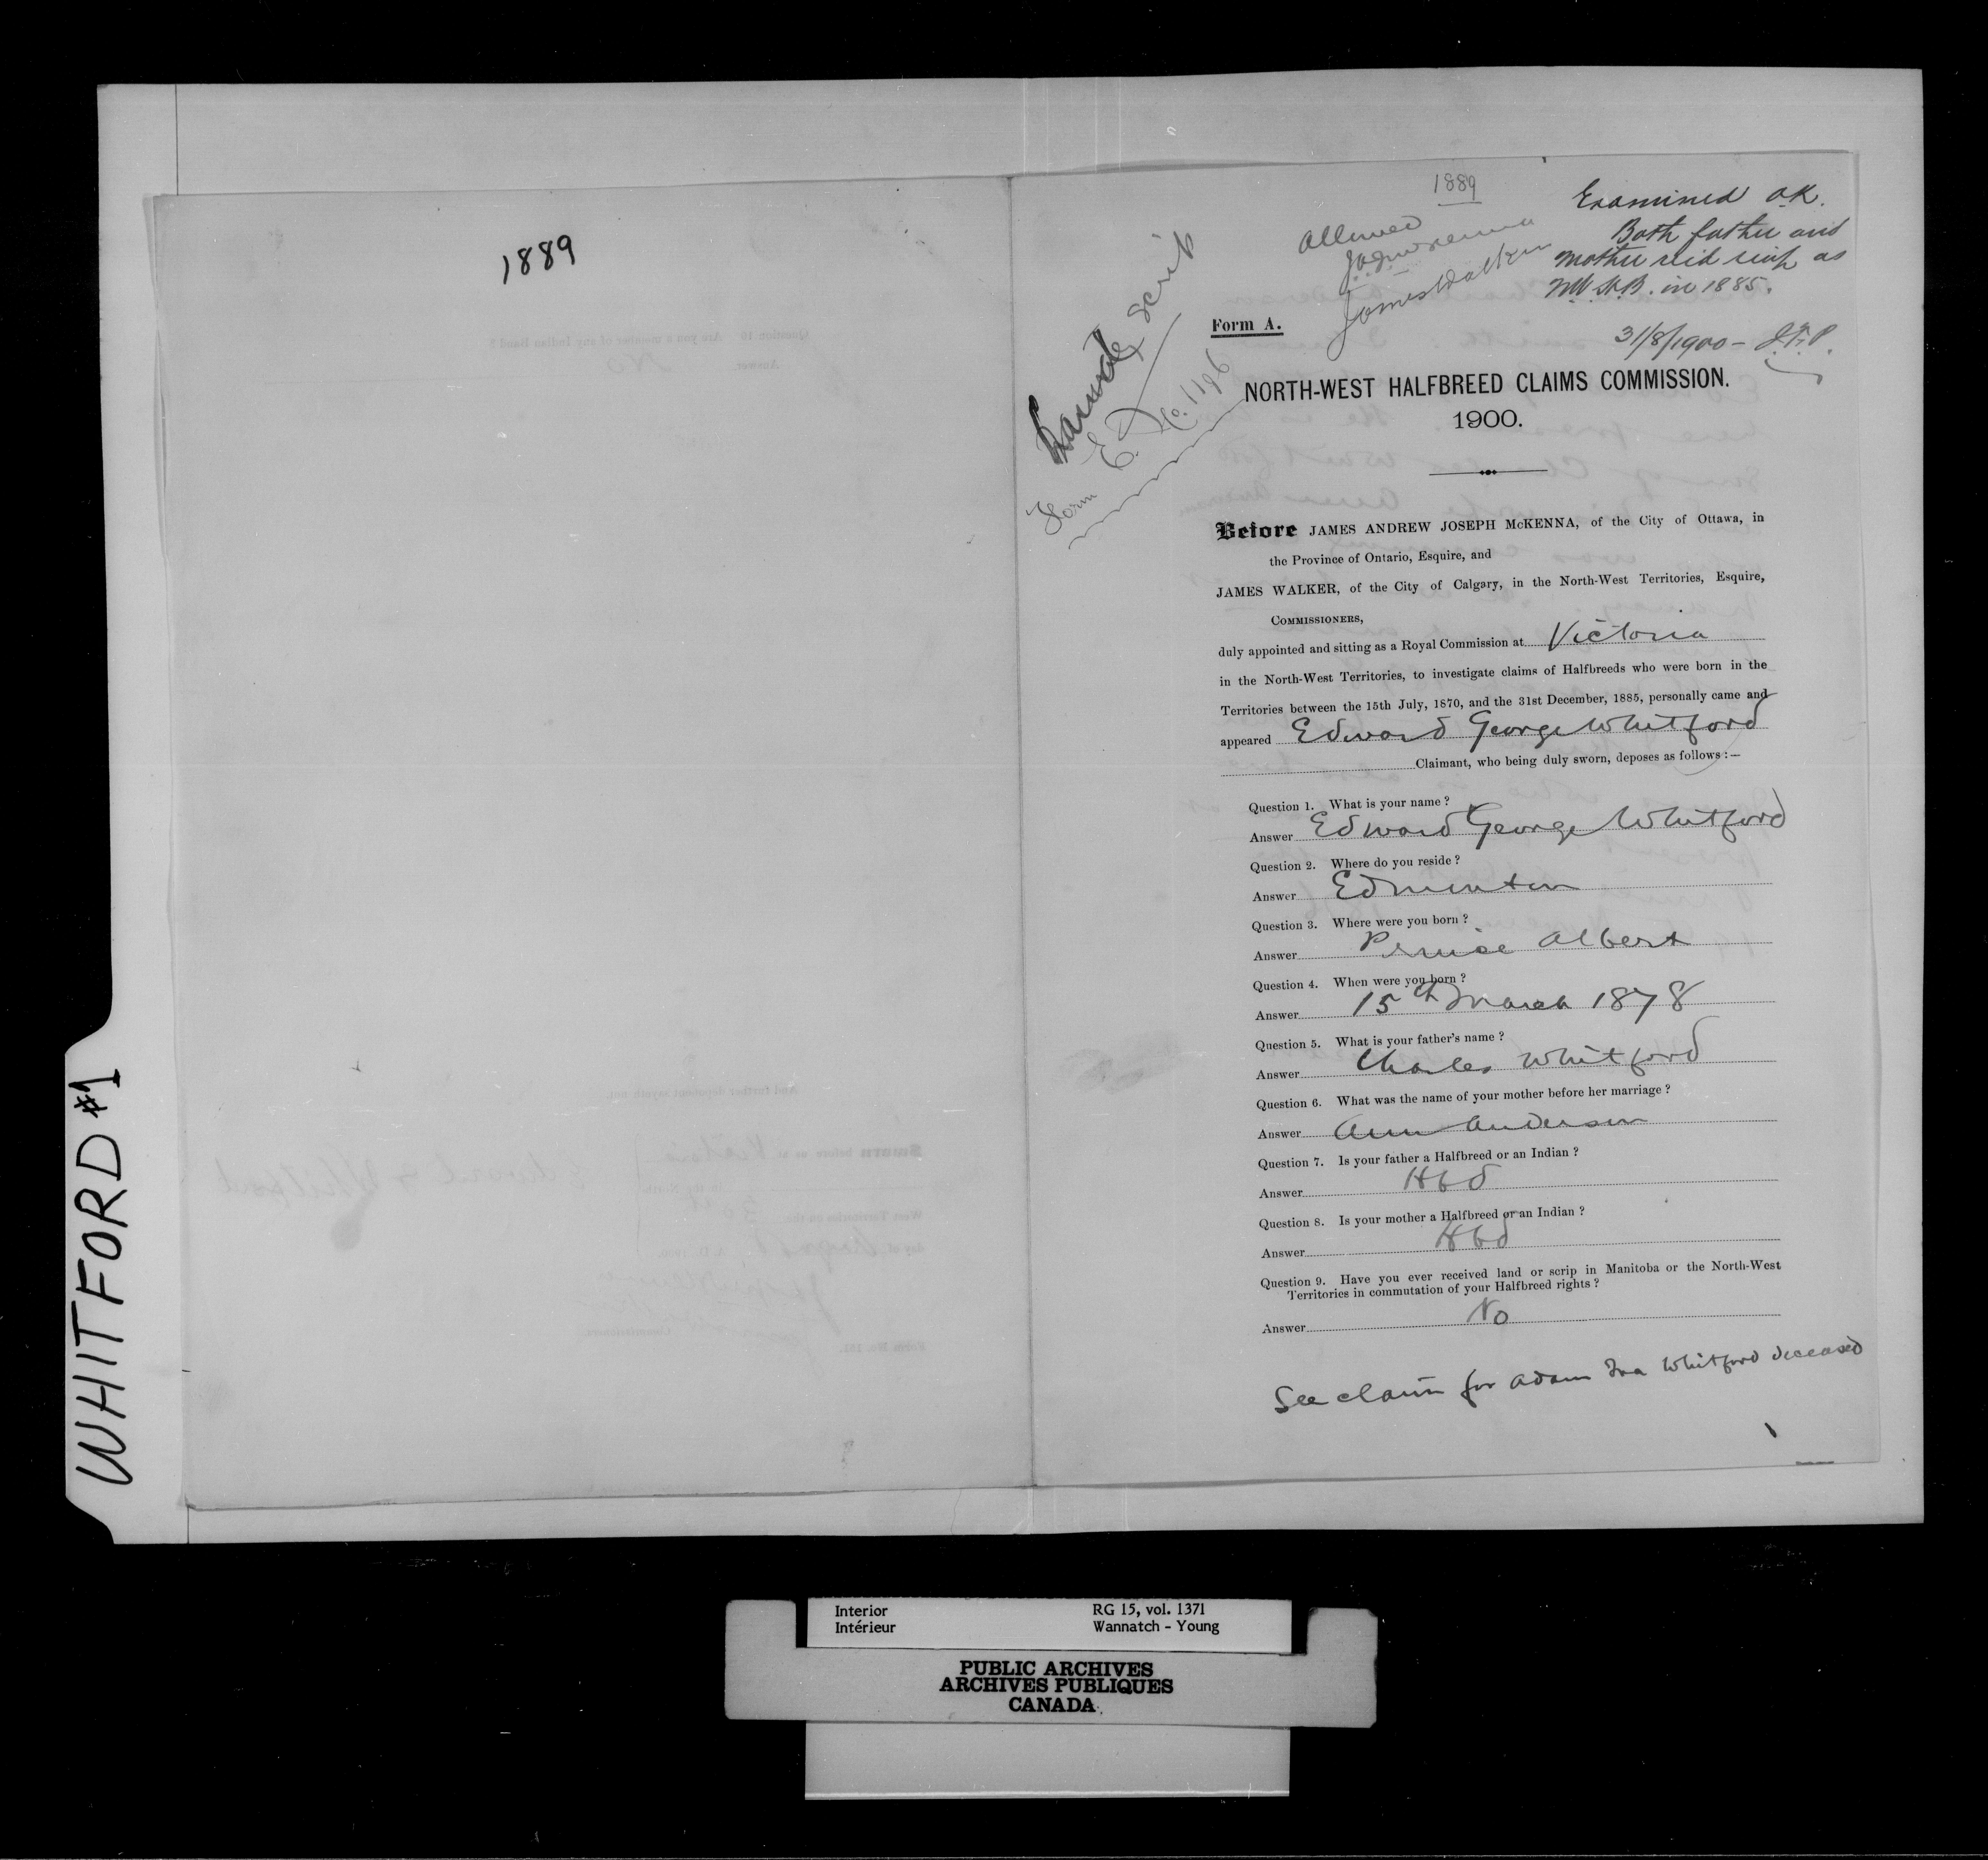 WHITFORD #1
1889
1889
Allowed
J.A.J. McKenna
James Walker
Examined O.K.
Both father and
mother rec'd scrip as
N.W.H.B. in 1885.
31/8/1900 - J.F.P.
scrip
Form E. No. 1196
Form A.
NORTH-WEST HALFBREED CLAIMS COMMISSION.
1900.
Before JAMES ANDREW JOSEPH McKENNA, of the City of Ottawa, in
the Province of Ontario, Esquire, and
JAMES WALKER, of the City of Calgary, in the North-West Territories, Esquire,
COMMISSIONERS,
duly appointed and sitting as a Royal Commission at Victoria
in the North-West Territories, to investigate claims of Halfbreeds who were born in the
Territories between the 15th July, 1870, and the 31st December, 1885, personally came and
appeared Edward George Whitford
Claimant, who being duly sworn, deposes as follows :—
Question 1. What is your name ?
Answer Edward George Whitford
Question 2. Where do you reside ?
Answer Edmonton
Question 3. Where were you born ?
Answer Prince Albert
Question 4. When were you born ?
Answer 15th March 1878
Question 5. What is your father's name ?
Answer Charles Whitford
Question 6. What was the name of your mother before her marriage ?
Answer Ann Anderson
Question 7. Is your father a Halfbreed or an Indian ?
Answer Hbd
Question 8. Is your mother a Halfbreed or an Indian ?
Answer Hbd
Question 9. Have you ever received land or scrip in Manitoba or the North-West
Territories in commutation of your Halfbreed rights ?
Answer No
See claim for Adam Ira Whitford deceased
Interior RG 15, vol. 1371
Intérieur Wannatch - Young
PUBLIC ARCHIVES
ARCHIVES PUBLIQUES
CANADA